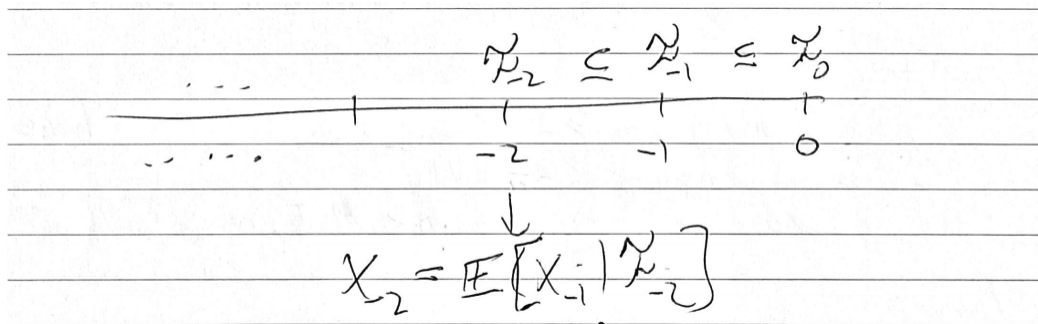 ℱ_{-2} ⊆ ℱ_{-1} ⊆ ℱ_0
...
-2 -1 0
.. ...
↓
X_{-2} = 𝔼[X_{-1} | ℱ_{-2}]